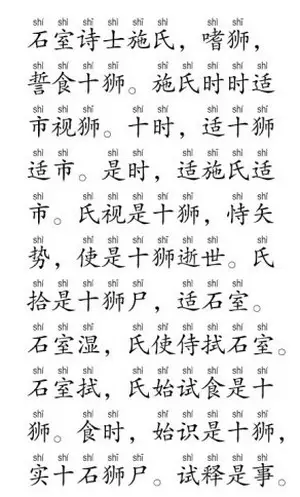 shí shì shī shì shī shì shì shī
石室诗士施氏，嗜狮，
shì shí shí shī shī shì shí shí shì
誓食十狮。施氏时时适
shì shì shī shí shí shì shí shī
市视狮。十时，适十狮
shì shì shì shí shì shī shì shì
适市。是时，适施氏适
shì shì shì shì shí shī shì shǐ
市。氏视是十狮，恃矢
shì shǐ shì shí shī shì shì shì
势，使是十狮逝世。氏
shí shì shí shī shī shì shí shì
拾是十狮尸，适石室。
shí shì shī shì shǐ shì shì shí shì
石室湿，氏使侍拭石室。
shí shì shì shì shǐ shì shí shì shí
石室拭，氏始试食是十
shī shí shí shǐ shí shì shí shī
狮。食时，始识是十狮，
shí shí shí shī shī shì shì shì shì
实十石狮尸。试释是事。